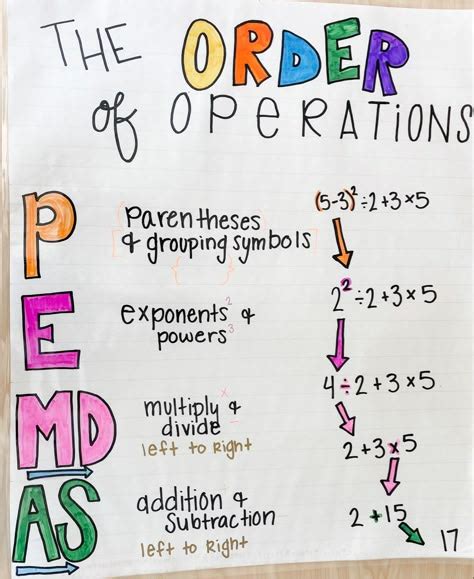 THE ORDER
of OPERATIONS
P
parentheses
& grouping symbols
(5-3)²÷2+3×5
E
exponents² &
powers³
2²÷2+3×5
4÷2+3×5
MD
multiply × &
divide ÷
left to Right
2+3×5
AS
addition &
Subtraction
left to Right
2+15
17